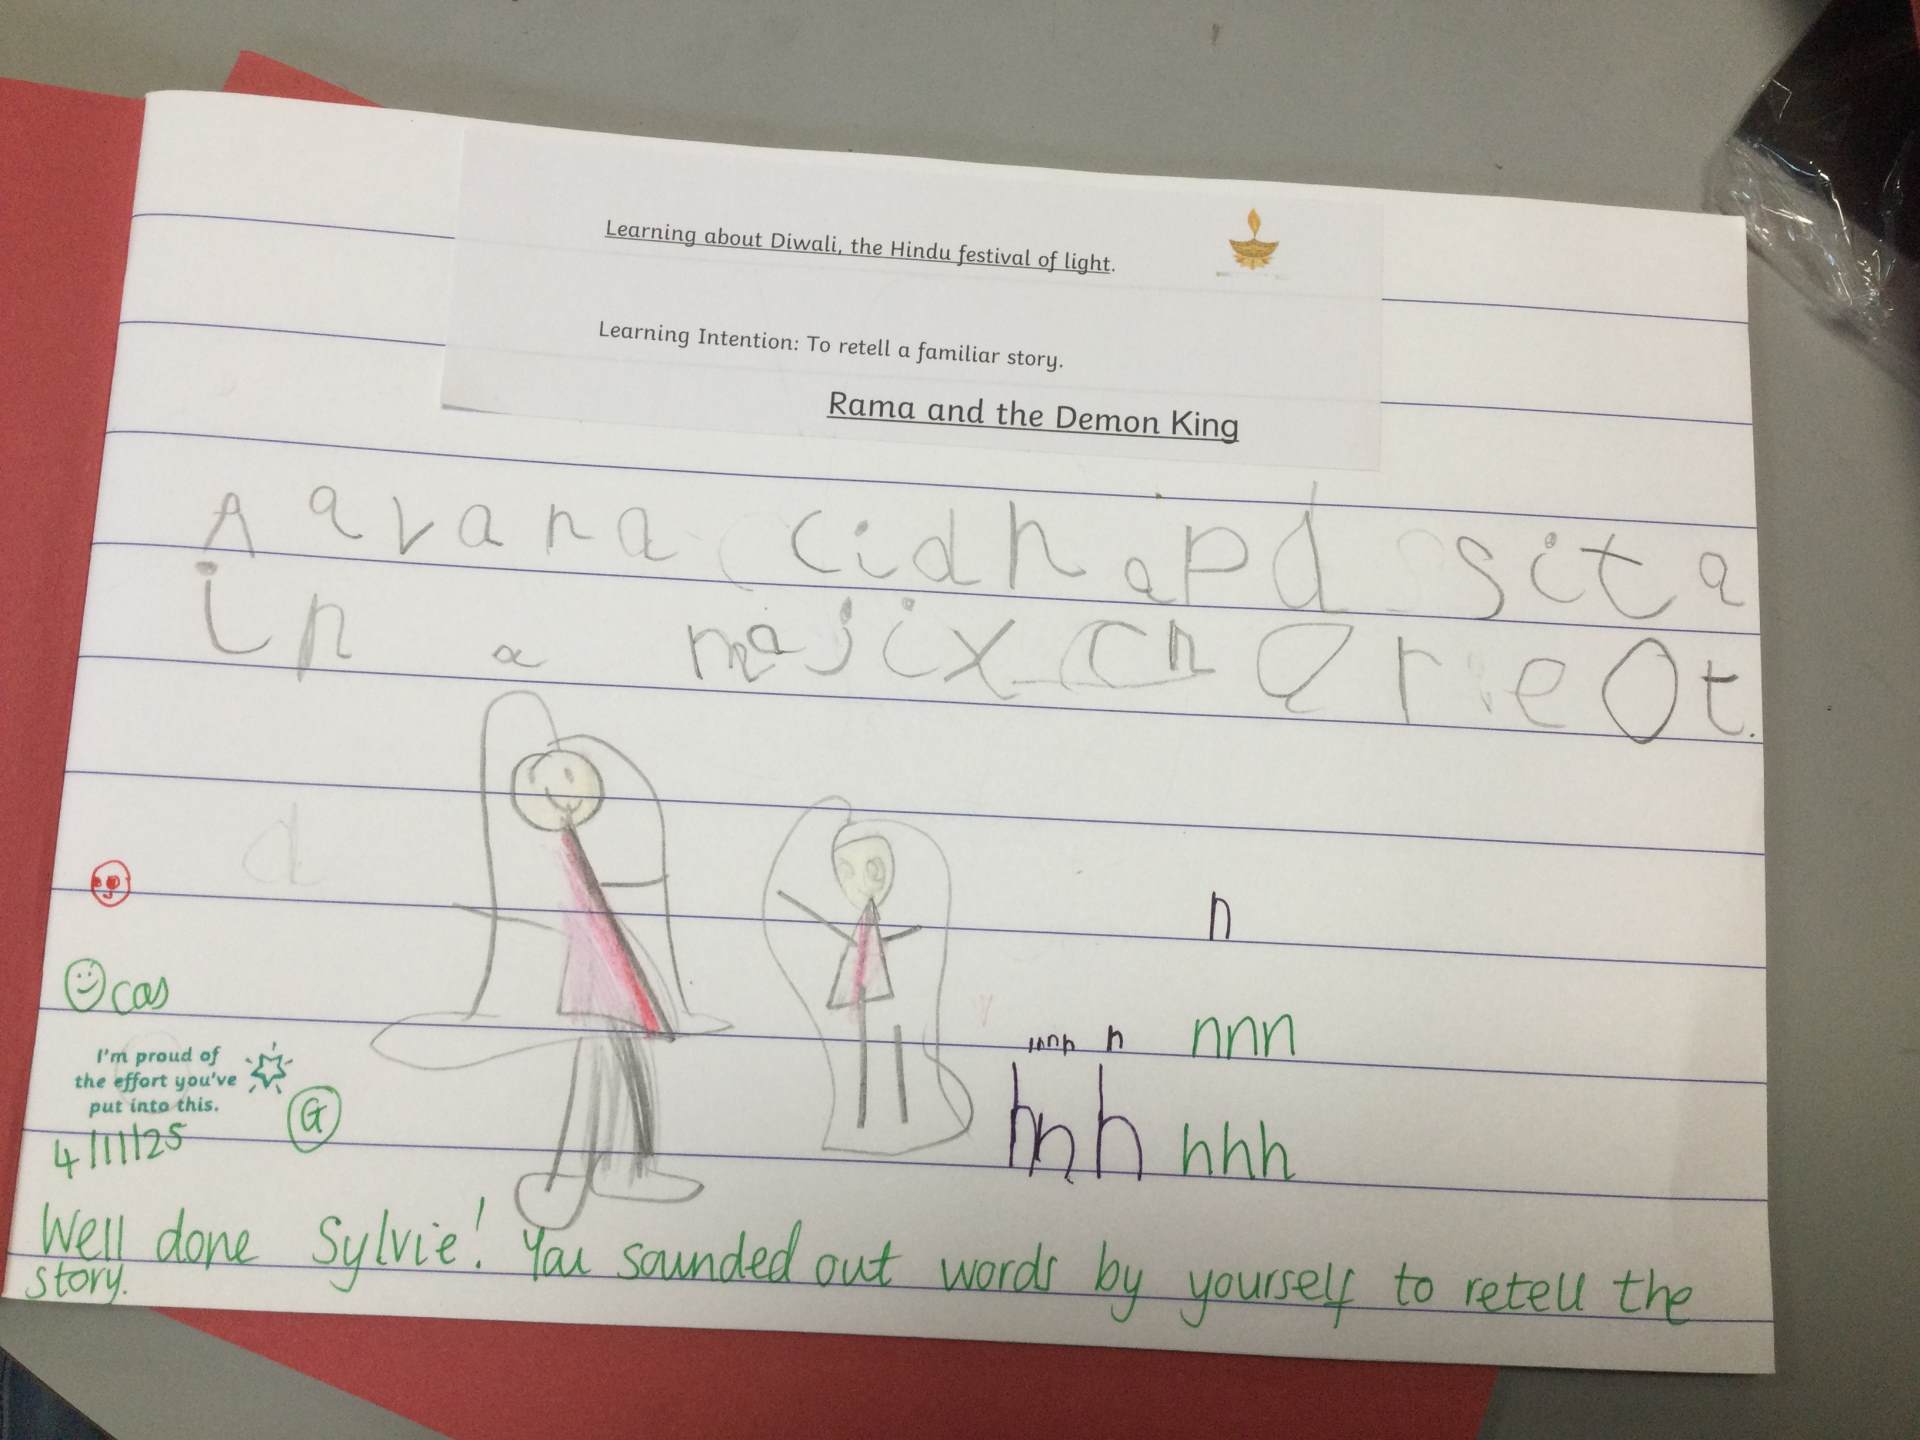 Learning about Diwali, the Hindu festival of light.
Learning Intention: To retell a familiar story.
Rama and the Demon King
Aavana cidnapd sita
in a majix chareot.
d
n
cas
I'm proud of
the effort you've
put into this.
G
4/11/25
n nnn
h hhh
Well done Sylvie! You sounded out words by yourself to retell the
story.